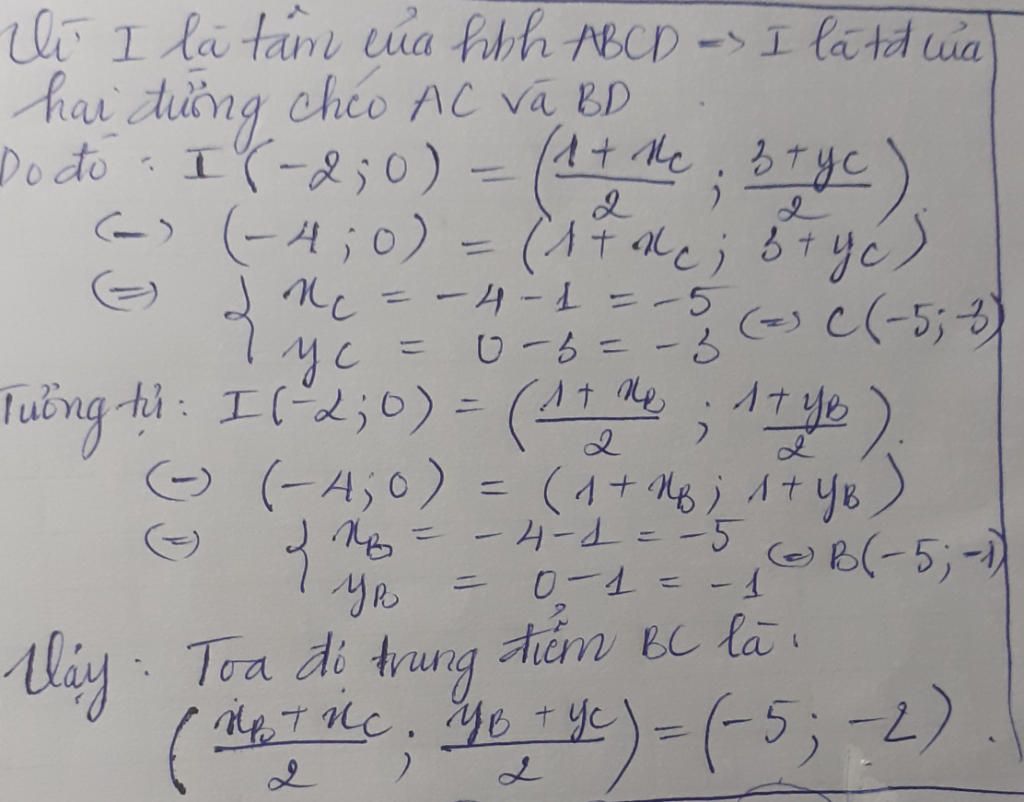 Vì I là tâm của hbh ABCD -> I là tđ của
hai đường chéo AC và BD
Do đó : I(-2; 0) = ((1 + xC)/2 ; (3 + yC)/2).
(=) (-4; 0) = (1 + xC; 3 + yC)
(=) { xC = -4 - 1 = -5
yC = 0 - 3 = -3 (=) C(-5; -3)
Tương tự: I(-2; 0) = ((1 + xB)/2 ; (1 + yB)/2).
(=) (-4; 0) = (1 + xB; 1 + yB)
(=) { xB = -4 - 1 = -5
yB = 0 - 1 = -1 (=) B(-5; -1)
Vậy : Toạ độ trung điểm BC là :
((xB + xC)/2 ; (yB + yC)/2) = (-5; -2).